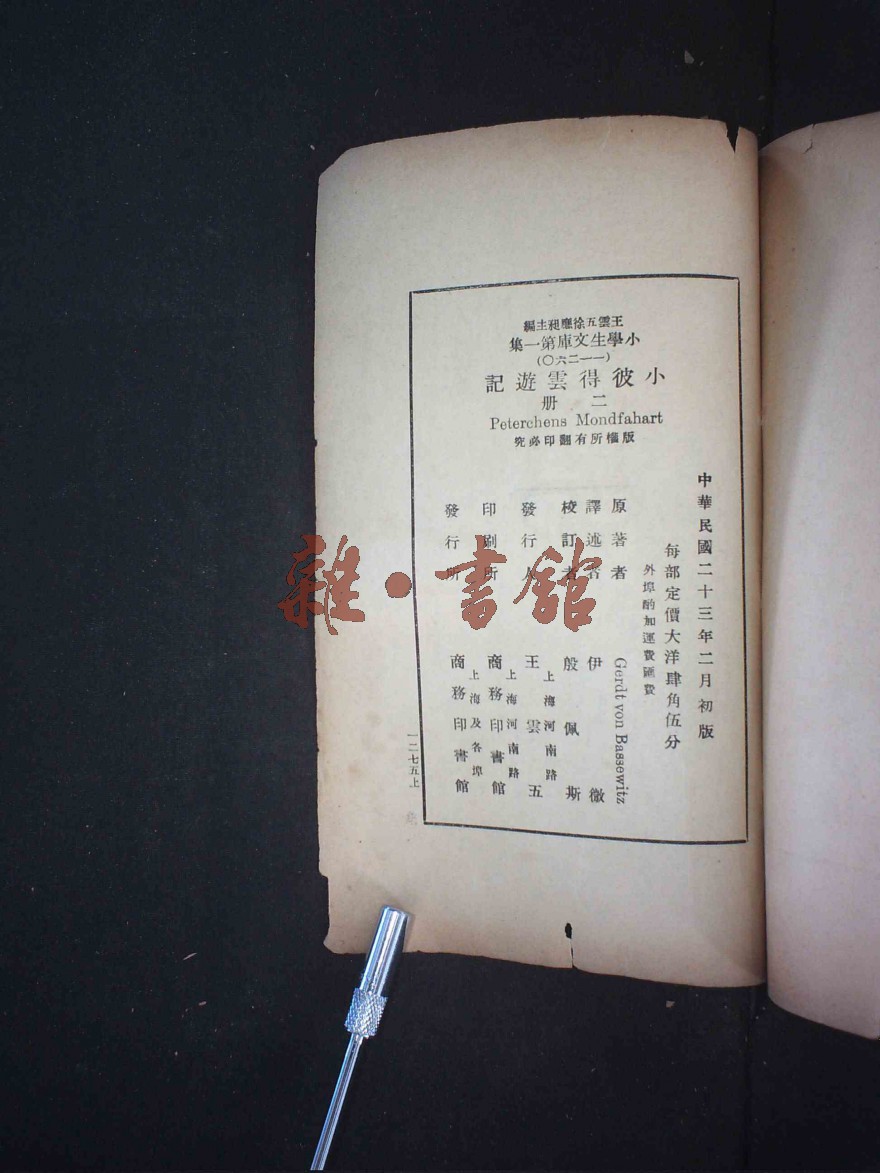 王雲五徐應昶主編
小學生文庫第一集
(一一二六〇)
小彼得雲遊記
二册
Peterchens Mondfahart
版權所有翻印必究
中華民國二十三年二月初版
每部定價大洋肆角伍分
外埠酌加運費匯費
原著者 Gerdt von Bassewitz
譯述者 伊微
校訂者 殷佩斯
發行人 王雲五
上海河南路
印刷所 商務印書館
上海河南路
發行所 商務印書館
上海及各埠
一二七五上
雜·書館